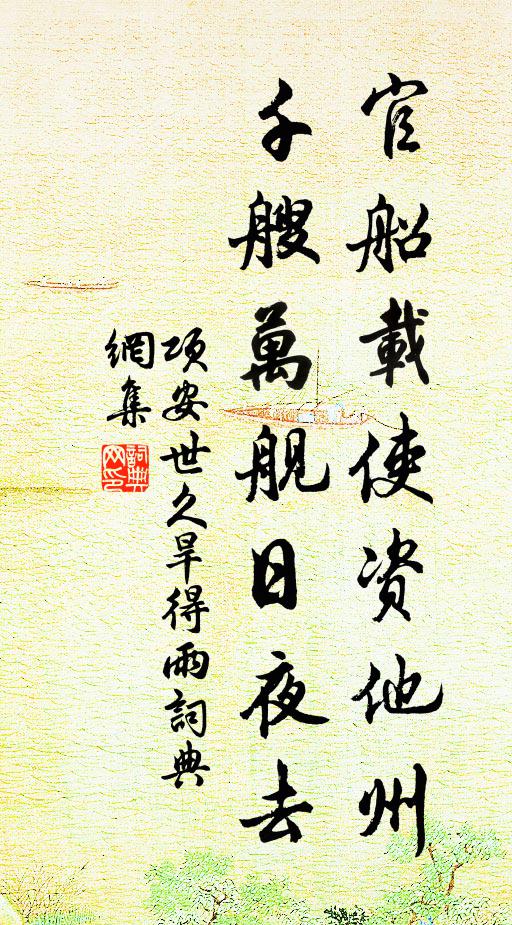 官船載使資他州
千艘萬舰日夜去
項安世久旱得雨詞典
網集
詞典網印